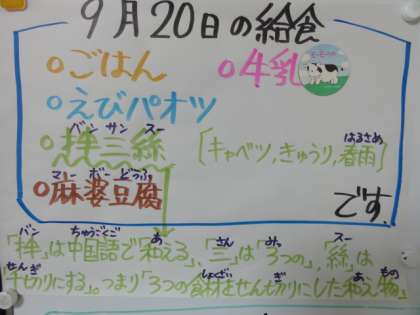 9月20日の給食
○ごはん ○牛乳
○えびパオツ
バン サン スー
○拌三絲
はるさめ
[キャベツ,きゅうり,春雨]
マー ボー どうふ
○麻婆豆腐
です。
バン ちゅうごくご あ さん みっ スー
「拌」は中国語で和える、「三」は「3つの」,「絲」は
せんぎ しょくざい ぎ あ もの
千切りにする。つまり「3つの食材をせん切りにした和え物」